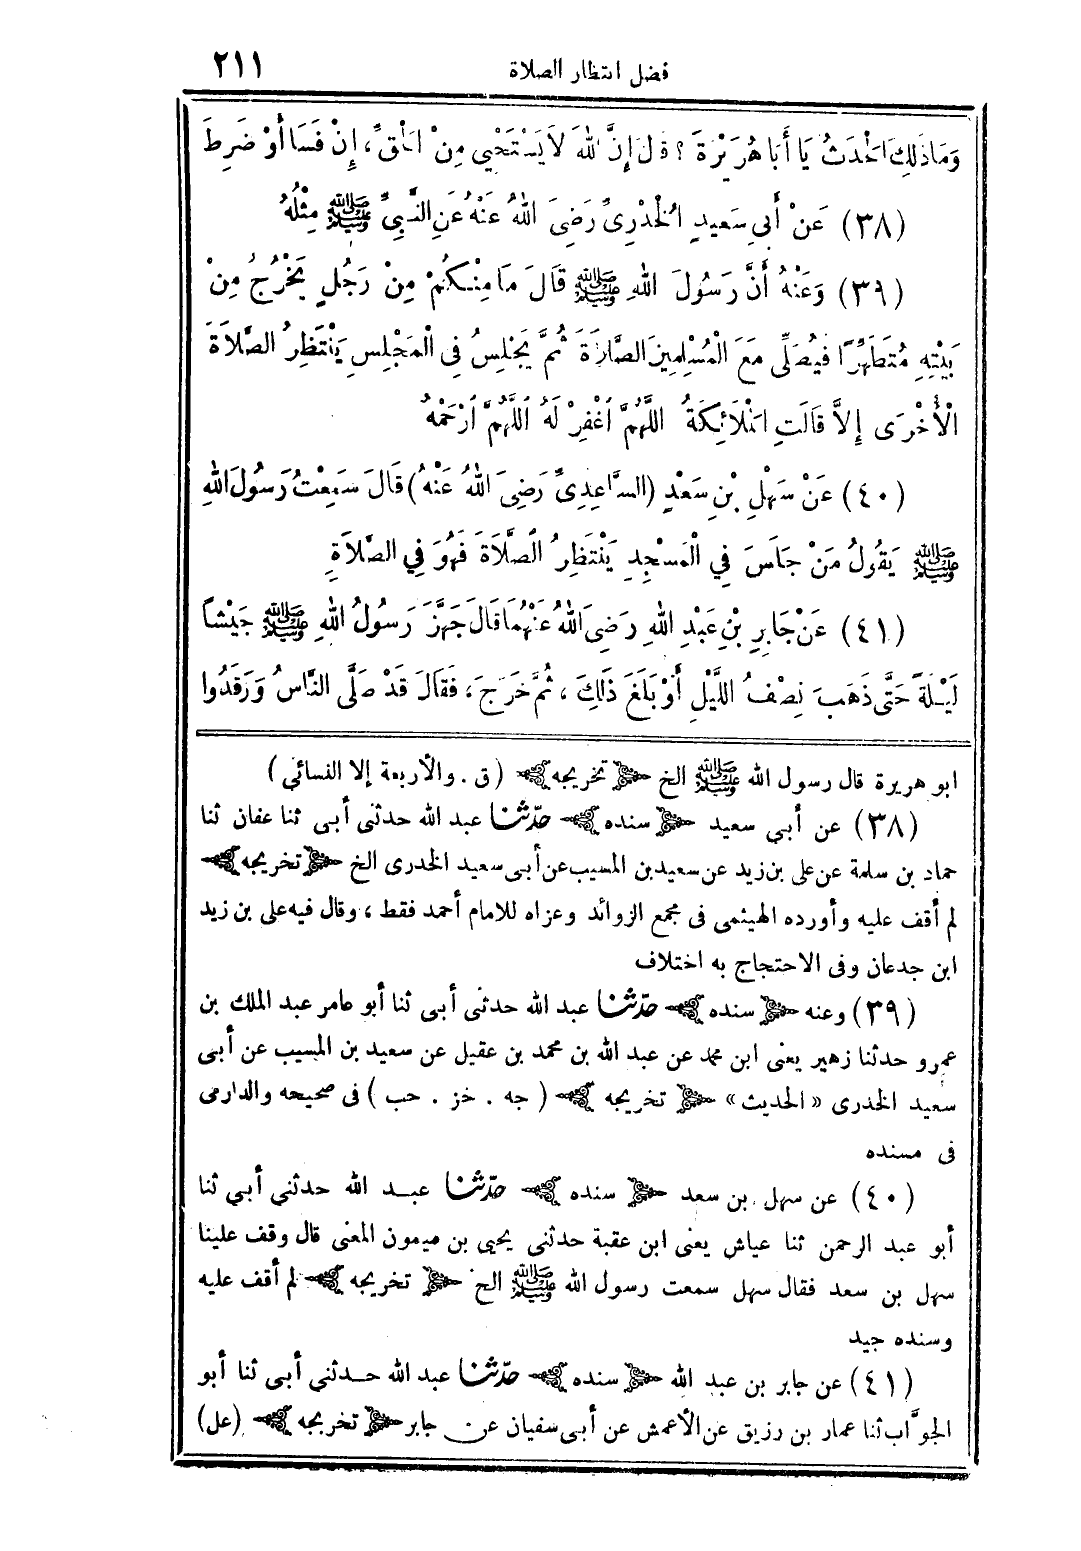 فضل انتظار الصلاة ٢١١
وَمَا ذَلِكَ الْحَدَثُ يَا أَبَا هُرَيْرَةَ ؟ قَالَ إِنَّ اللهَ لَا يَسْتَحْيِي مِنَ الْحَقِّ ، إِنْ فَسَا أَوْ ضَرِطَ
(٣٨) عَنْ أَبِي سَعِيدٍ الْخُدْرِيِّ رَضِيَ اللهُ عَنْهُ عَنِ النَّبِيِّ ﷺ مِثْلُهُ
(٣٩) وَعَنْهُ أَنَّ رَسُولَ اللهِ ﷺ قَالَ مَا مِنْكُمْ مِنْ رَجُلٍ يَخْرُجُ مِنْ
بَيْتِهِ مُتَطَهِّرًا فَيُصَلِّي مَعَ الْمُسْلِمِينَ الصَّلَاةَ ثُمَّ يَجْلِسُ فِي الْمَجْلِسِ يَنْتَظِرُ الصَّلَاةَ
الْأُخْرَى إِلَّا قَالَتِ الْمَلَائِكَةُ اللَّهُمَّ اغْفِرْ لَهُ اللَّهُمَّ ارْحَمْهُ
(٤٠) عَنْ سَهْلِ بْنِ سَعْدٍ (السَّاعِدِيِّ رَضِيَ اللهُ عَنْهُ) قَالَ سَمِعْتُ رَسُولَ اللهِ
ﷺ يَقُولُ مَنْ جَلَسَ فِي الْمَسْجِدِ يَنْتَظِرُ الصَّلَاةَ فَهُوَ فِي الصَّلَاةِ
(٤١) عَنْ جَابِرِ بْنِ عَبْدِ اللهِ رَضِيَ اللهُ عَنْهُمَا قَالَ جَهَّزَ رَسُولُ اللهِ ﷺ جَيْشًا
لَيْلَةً حَتَّى ذَهَبَ نِصْفُ اللَّيْلِ أَوْ بَلَغَ ذَلِكَ ، ثُمَّ خَرَجَ ، فَقَالَ قَدْ صَلَّى النَّاسُ وَرَقَدُوا
ابو هريرة قال رسول الله ﷺ الخ ﴿ تخريجه ﴾ (ق . والأربعة إلا النسائى)
(٣٨) عن أبي سعيد ﴿ سنده ﴾ حدّثنا عبد الله حدثنى أبى ثنا عفان ثنا
حماد بن سلمة عن على بن زيد عن سعيد بن المسيب عن أبى سعيد الخدرى الخ ﴿ تخريجه ﴾
لم أقف عليه وأورده الهيثمى فى مجمع الزوائد وعزاه للامام أحمد فقط ، وقال فيه على بن زيد
ابن جدعان وفى الاحتجاج به اختلاف
(٣٩) وعنه ﴿ سنده ﴾ حدّثنا عبد الله حدثنى أبى ثنا أبو عامر عبد الملك بن
عمرو حدثنا زهير يعنى ابن محمد عن عبد الله بن محمد بن عقيل عن سعيد بن المسيب عن أبى
سعيد الخدرى «الحديث» ﴿ تخريجه ﴾ ( جه . خز . حب ) فى صحيحه والدارمى
فى مسنده
(٤٠) عن سهل بن سعد ﴿ سنده ﴾ حدّثنا عبد الله حدثني أبي ثنا
أبو عبد الرحمن ثنا عياش يعنى ابن عقبة حدثنى يحيى بن ميمون المعنى قال وقف علينا
سهل بن سعد فقال سهل سمعت رسول الله ﷺ الخ ﴿ تخريجه ﴾ لم أقف عليه
وسنده جيد
(٤١) عن جابر بن عبد الله ﴿ سنده ﴾ حدّثنا عبد الله حدثنى أبى ثنا أبو
الجوَّاب ثنا عمار بن رزيق عن الأعمش عن أبى سفيان عن جابر ﴿ تخريجه ﴾ (عل)